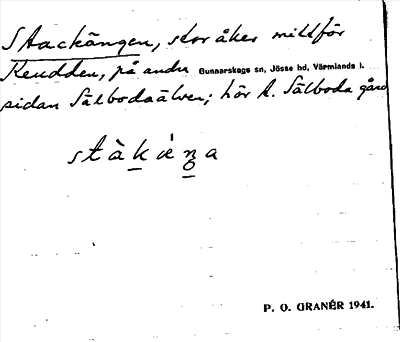 Stackängen, stor åker mittför
Keudden, på andra Gunnarskogs sn, Jösse hd, Värmlands l.
sidan Sälbodaälven; hör t. Sälboda gård
P. O. GRANÉR 1941.